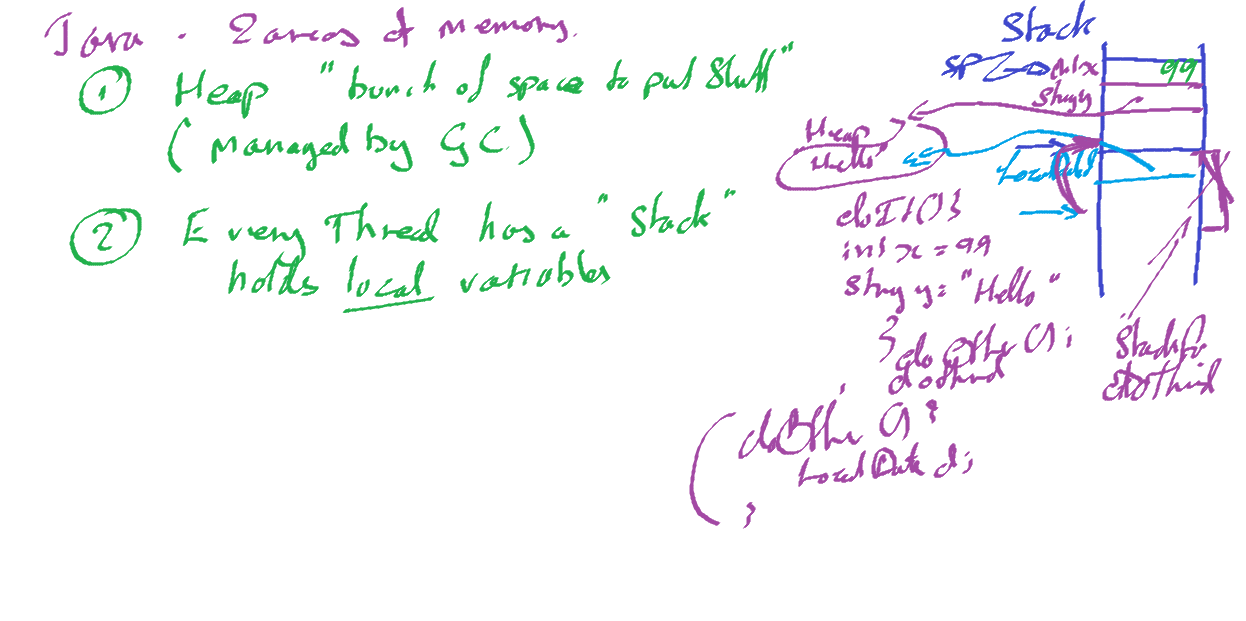 Java - 2 areas of memory.
① Heap "bunch of space to put stuff"
(managed by GC)
② Every Thread has a "Stack"
holds local variables
Stack
SP
int x
99
String y
Heap
"Hello"
LocalDate
doIt() {
int x = 99
String y = "Hello"
} doOther();
doThird
Stack for
doThird
doOther() {
LocalDate d;
}